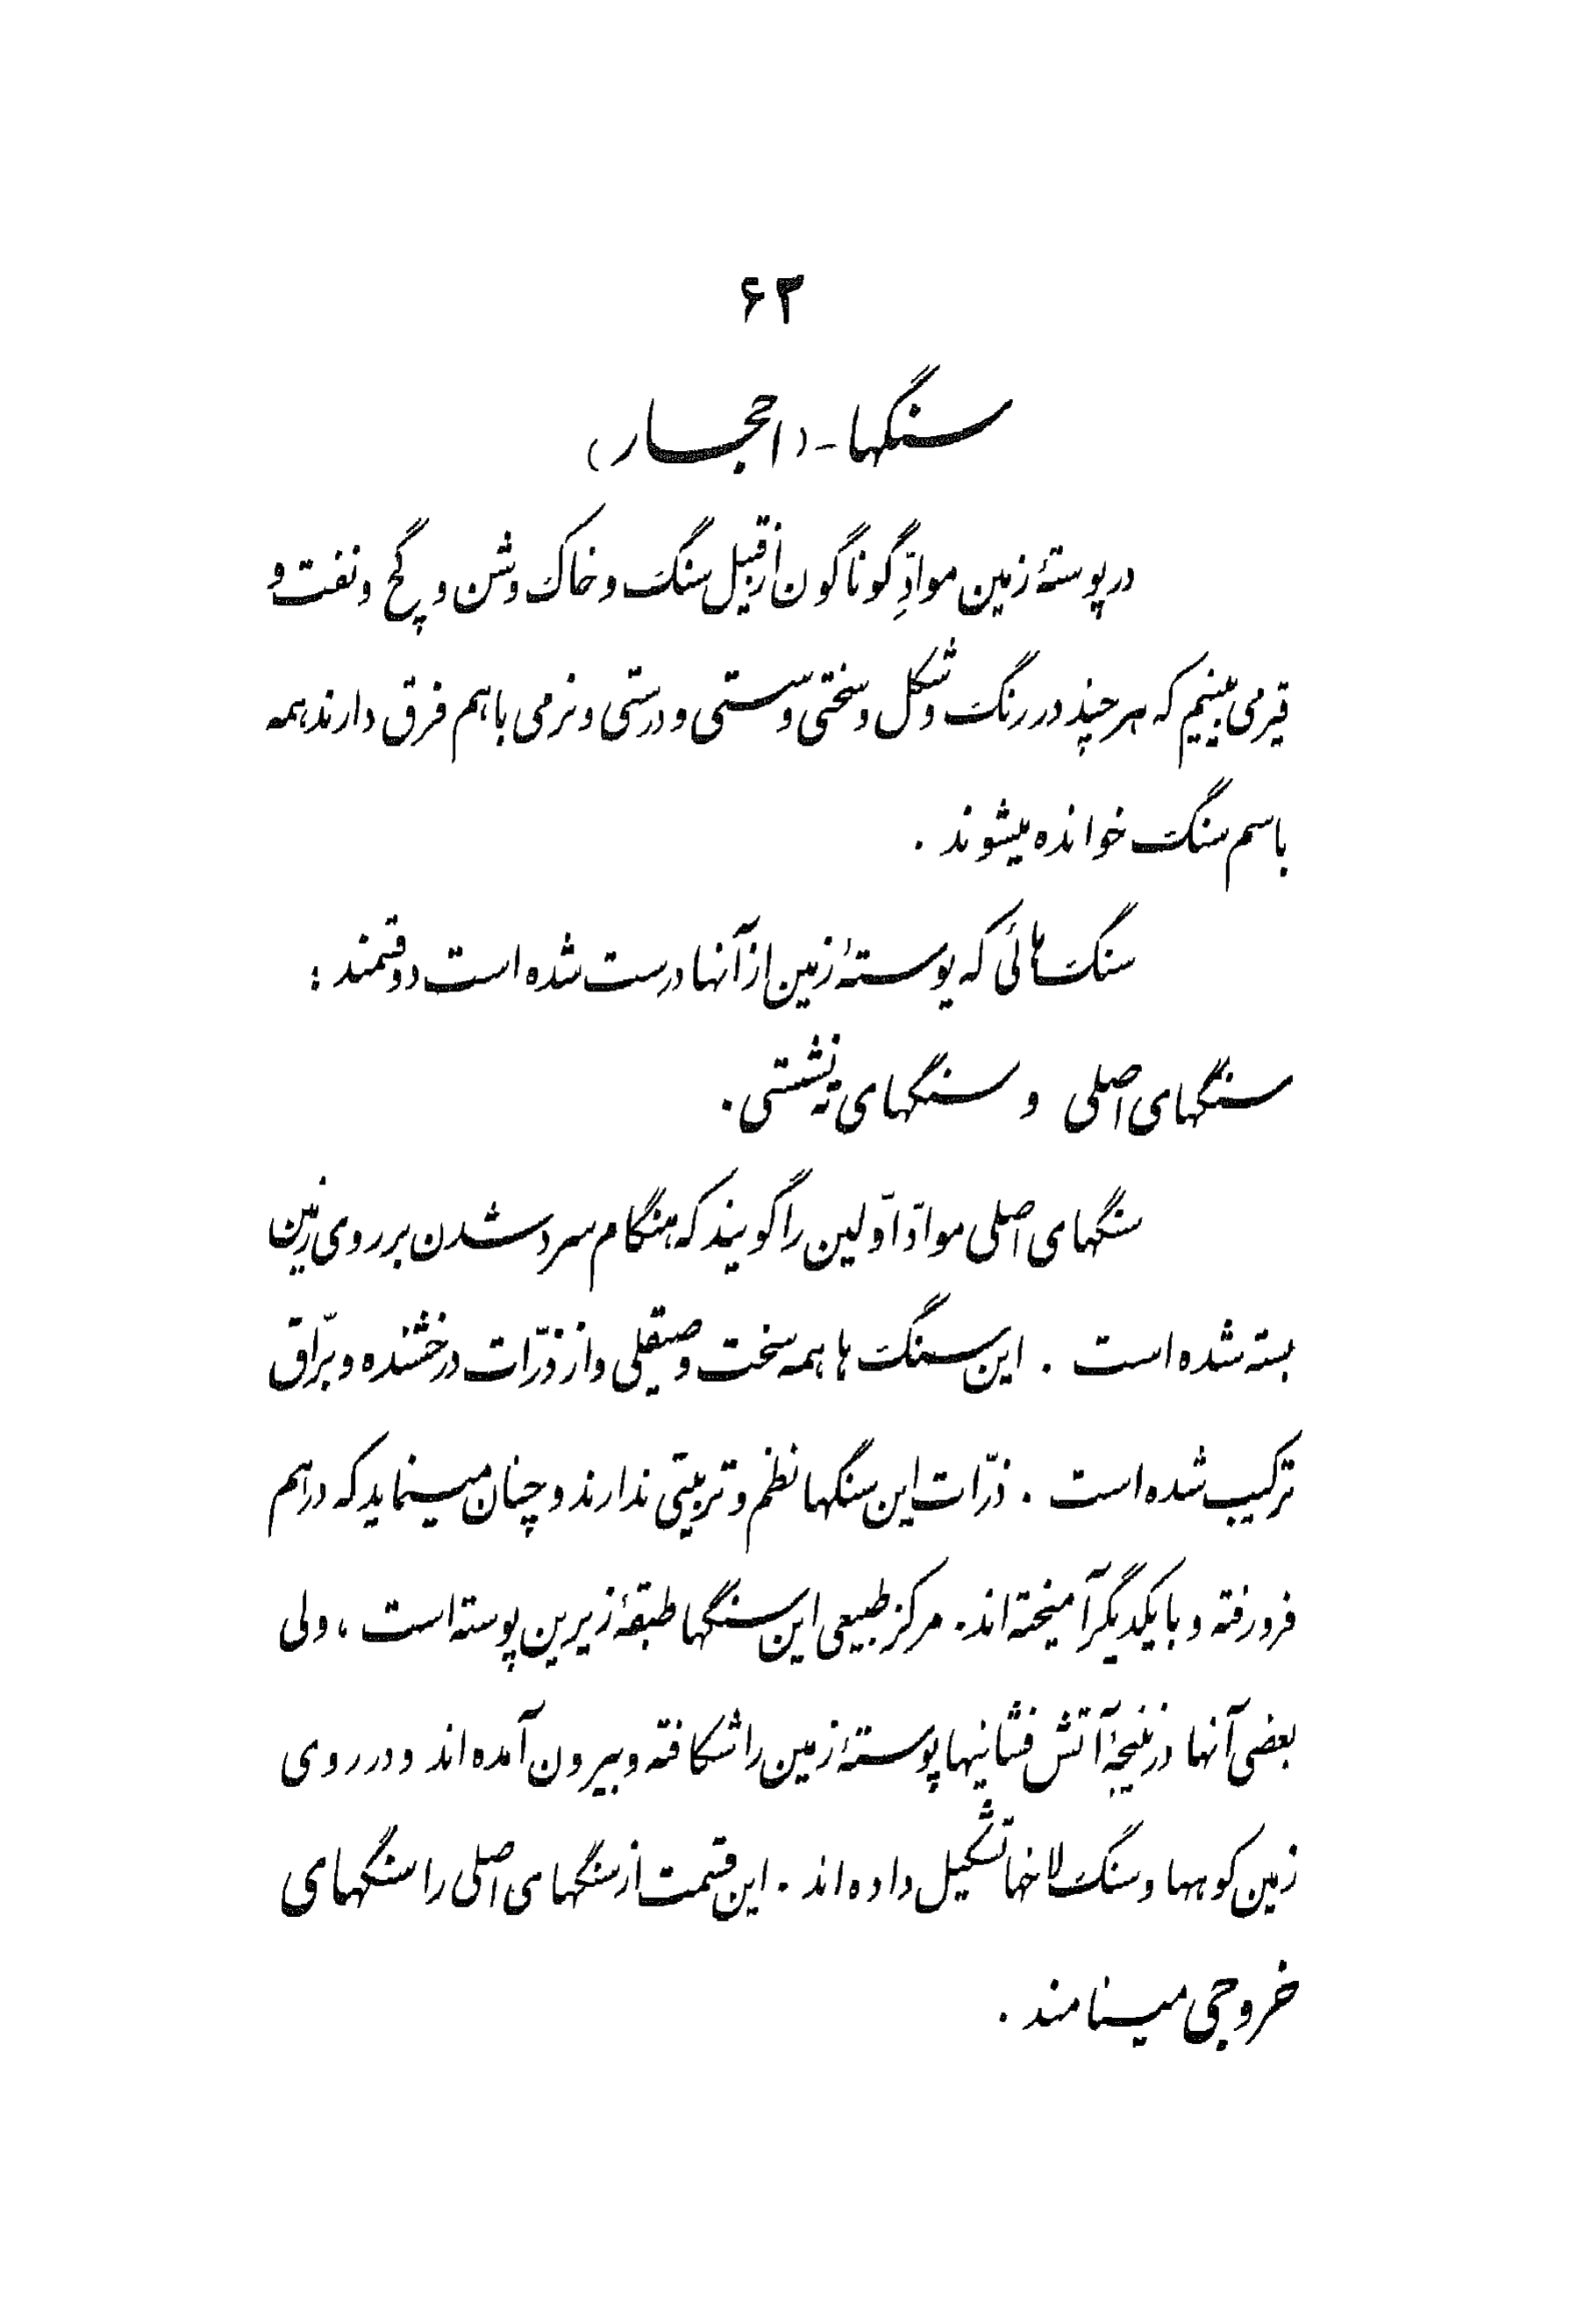 ۶۳
سنگها - (احجار)
در پوستهٔ زمین موادِّ گوناگون از قبیل سنگ و خاک و شن و گچ و نفت و
قیر می بینیم که هر چند در رنگ و شکل و سختی و سستی و درستی و نرمی با هم فرق دارند همه
باسم سنگ خوانده میشوند .
سنگ هائی که پوستهٔ زمین از آنها درست شده است دو قسمند :
سنگهای اصلی و سنگهای ته نشستی .
سنگهای اصلی موادّ اوّلین را گویند که هنگام سرد شدن بر روی زمین
بسته شده است . این سنگ ها همه سخت و صیقلی و از ذرّات درخشنده و برّاق
ترکیب شده است . ذرّات این سنگها نظم و ترتیبی ندارند و چنان مینماید که در هم
فرو رفته و با یکدیگر آمیخته اند . مرکز طبیعی این سنگها طبقهٔ زیرین پوسته است ، ولی
بعضی آنها در نتیجهٔ آتش فشانیها پوستهٔ زمین را شکافته و بیرون آمده اند و در روی
زمین کوهها و سنگلاخها تشکیل داده اند . این قسمت از سنگهای اصلی را سنگهای
خروجی مینامند .